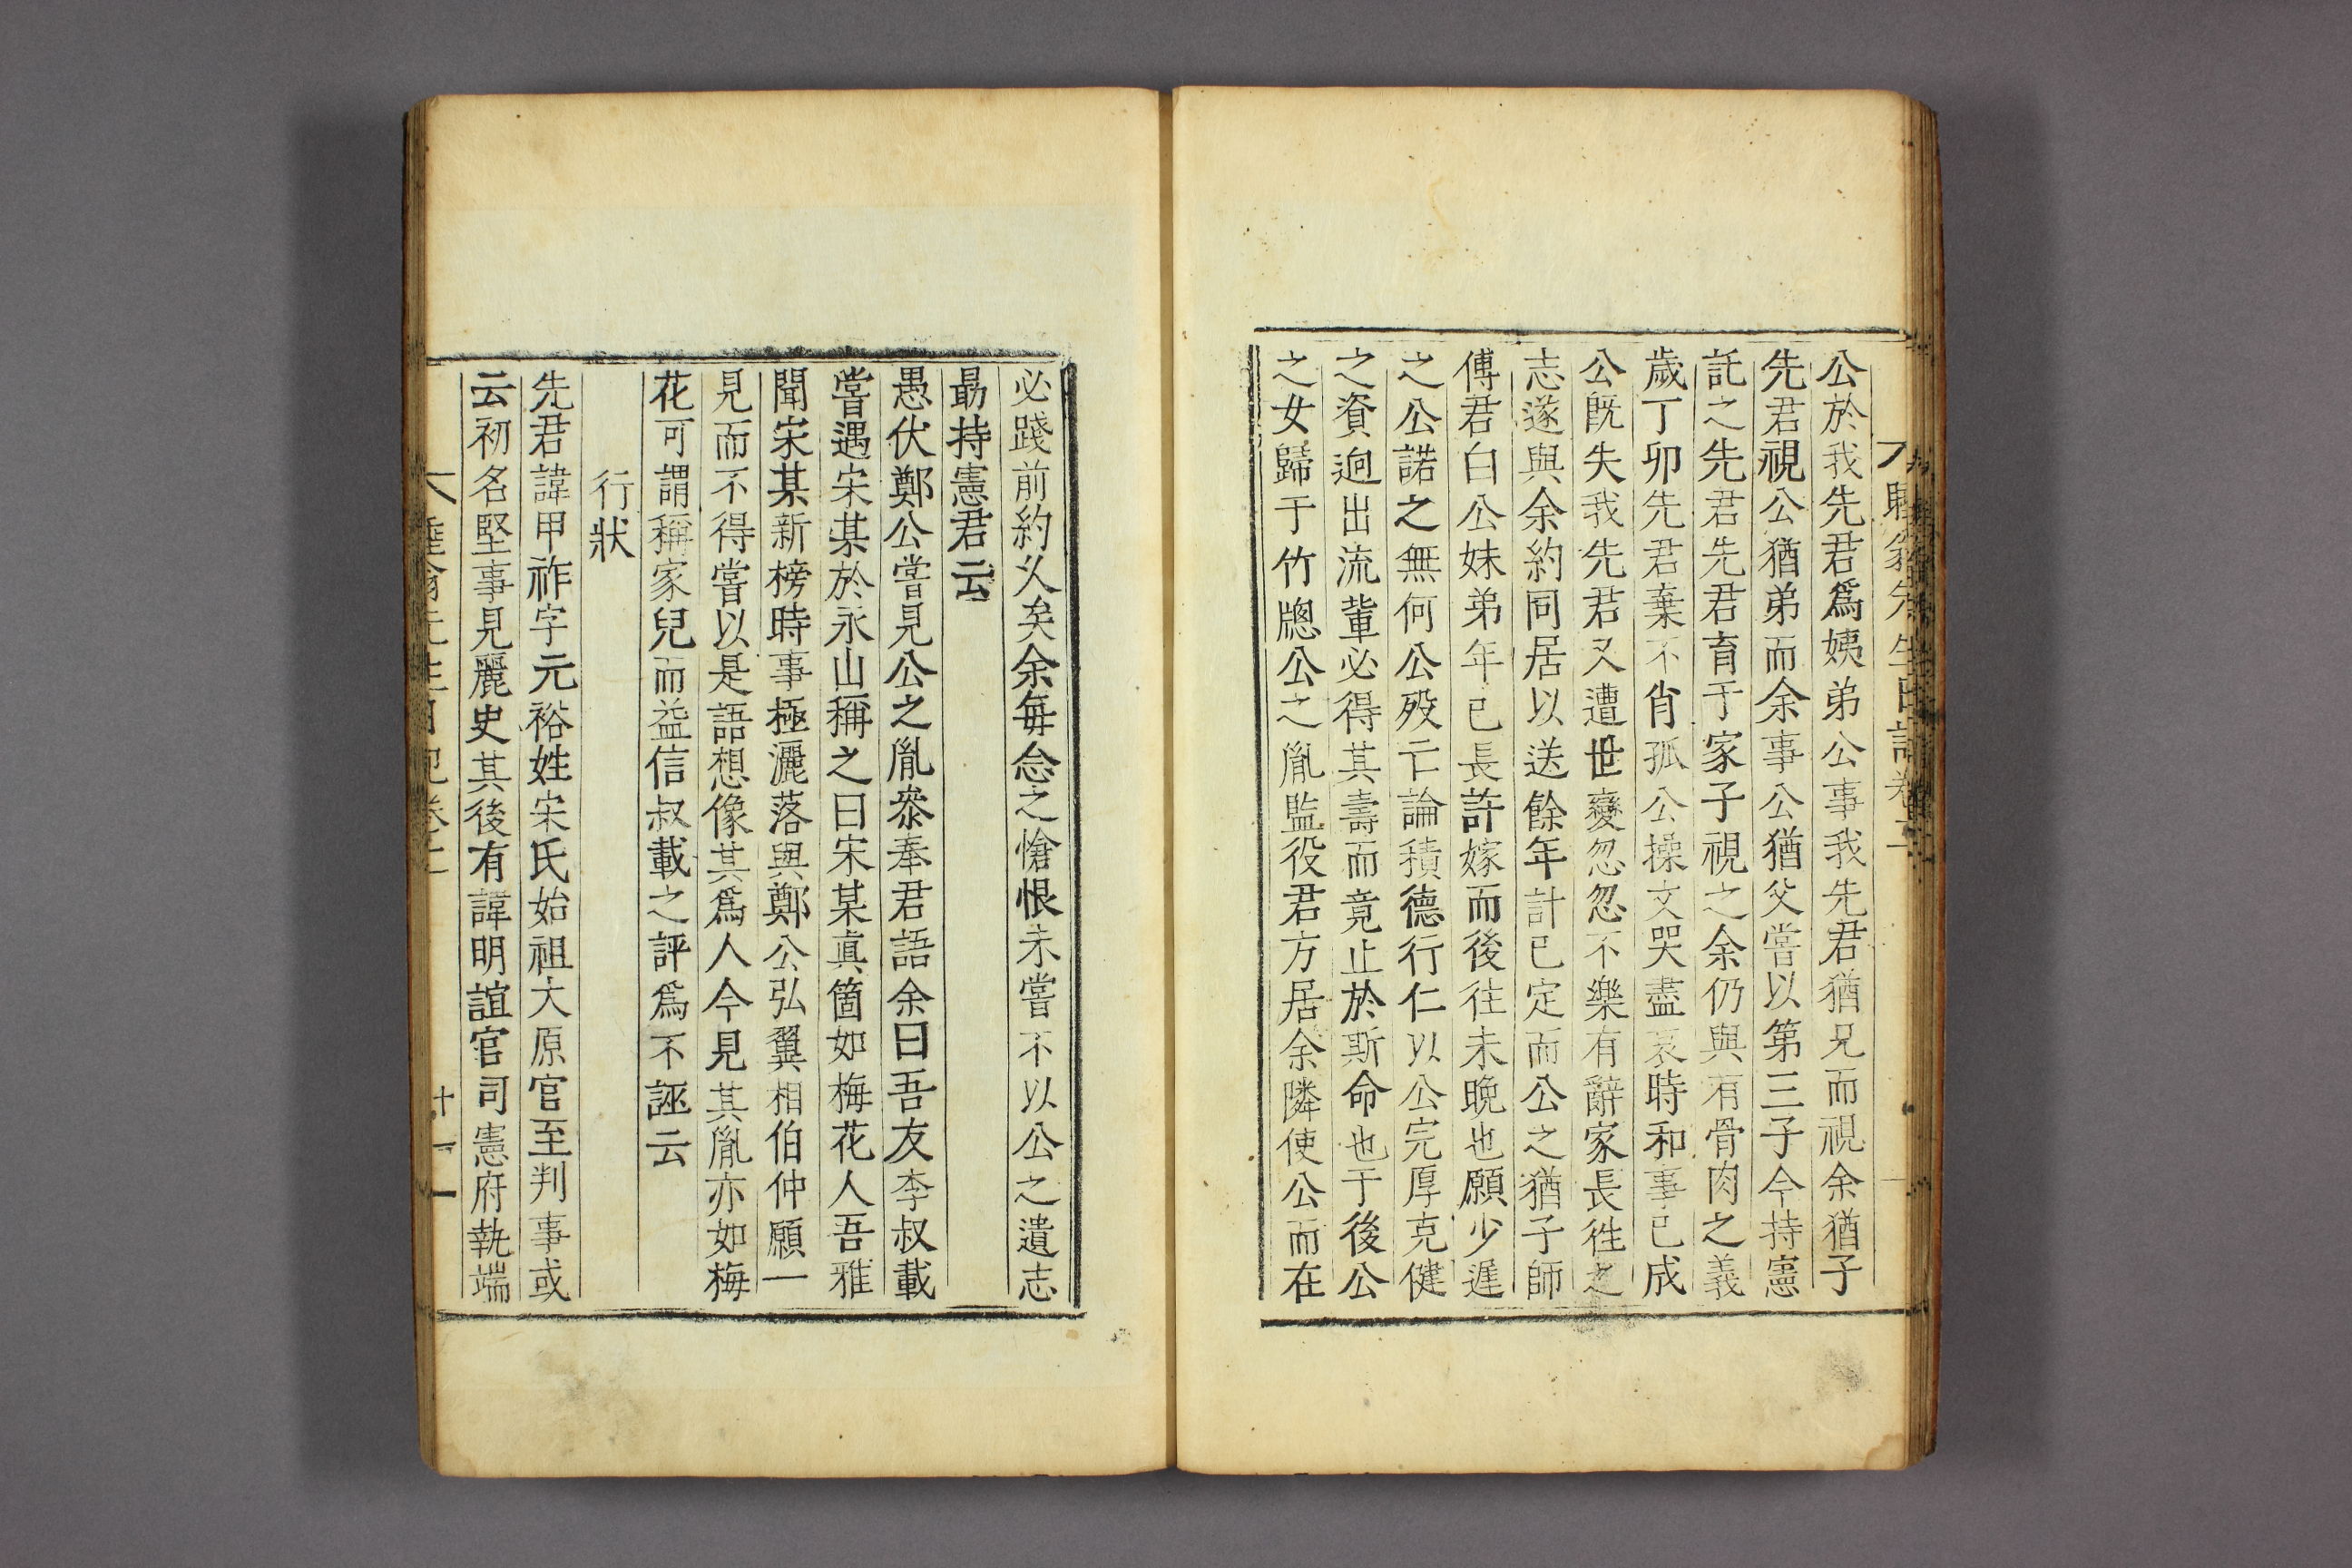 公於我先君爲姨弟公事我先君猶兄而視余猶子
先君視公猶弟而余事公猶父嘗以第三子今持憲
託之先君先君育于家子視之余仍與有骨肉之義
歲丁卯先君棄不肖孤公操文哭盡哀時和事已成
公旣失我先君又遭世變忽忽不樂有辭家長徃之
志遂與余約同居以送餘年計已定而公之猶子師
傅君白公妹弟年已長許嫁而後往未晩也願少遲
之公諾之無何公歿亡論積德行仁以公完厚克健
之資逈出流軰必得其壽而竟止於斯命也于後公
之女歸于竹牕公之胤監役君方居余隣使公而在
必踐前約乆矣余每念之愴恨未嘗不以公之遺志
勗持憲君云
愚伏鄭公嘗見公之胤叅奉君語余曰吾友李叔載
嘗遇宋某於永山稱之曰宋某眞箇如梅花人吾雅
聞宋某新榜時事極灑落與鄭公弘翼相伯仲願一
見而不得嘗以是語想像其爲人今見其胤亦如梅
花可謂稱家兒而益信叔載之評爲不誣云
行狀
先君諱甲祚字元裕姓宋氏始祖大原官至判事或
云初名堅事見麗史其後有諱明誼官司憲府執端
睡翁先生日記卷二
十一